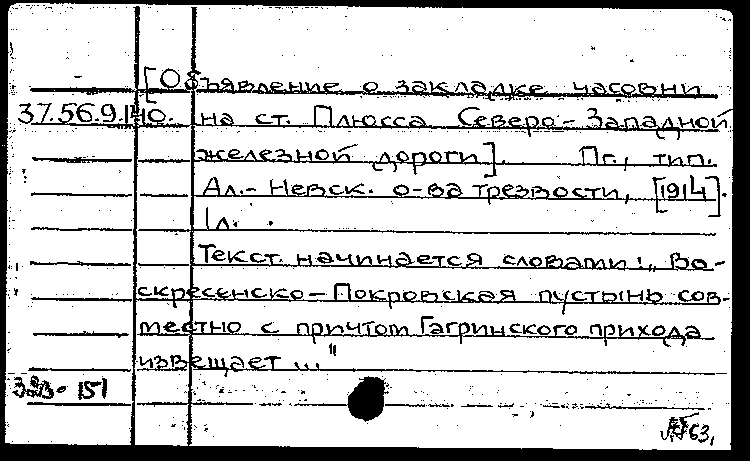 [Объявление о закладке часовни
37.56.9.140. на ст. Плюсса Северо-Западной
железной дороги]. Пг., тип.
Ал.-Невск. о-ва трезвости, [1914].
1л.
Текст начинается словами: „Во-
скресенско-Покровская пустынь сов-
местно с причтом Гагринского прихода
извещает..."
151
63,